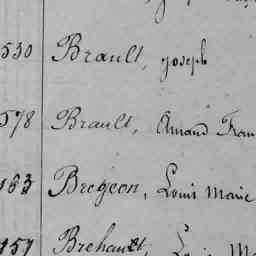 530 Brault, Joseph
578 Brault, Amand Fran
163 Bregeon, Louis Marie
151 Brehault, Louis M